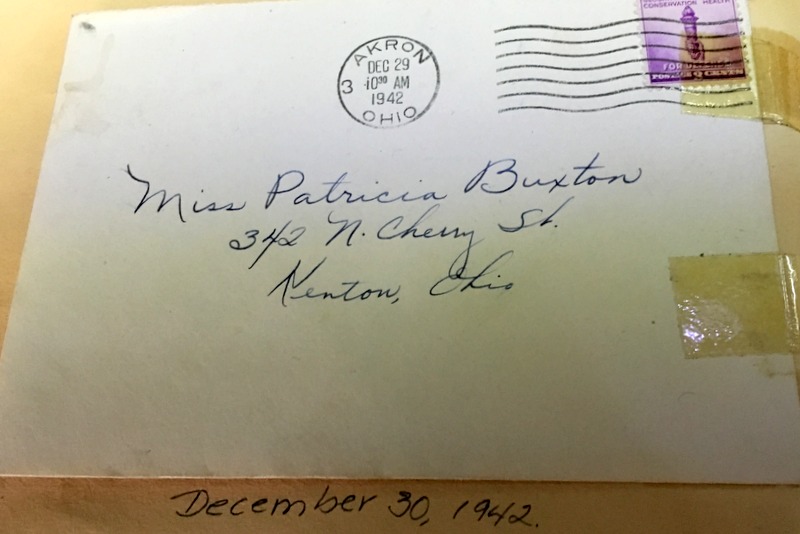 CONSERVATION HEALTH
FOR DEFENSE
POSTAGE CENTS
AKRON
DEC 29
3 10 30 AM
1942
OHIO
Miss Patricia Buxton
342 N. Cherry St.
Kenton, Ohio
December 30, 1942.